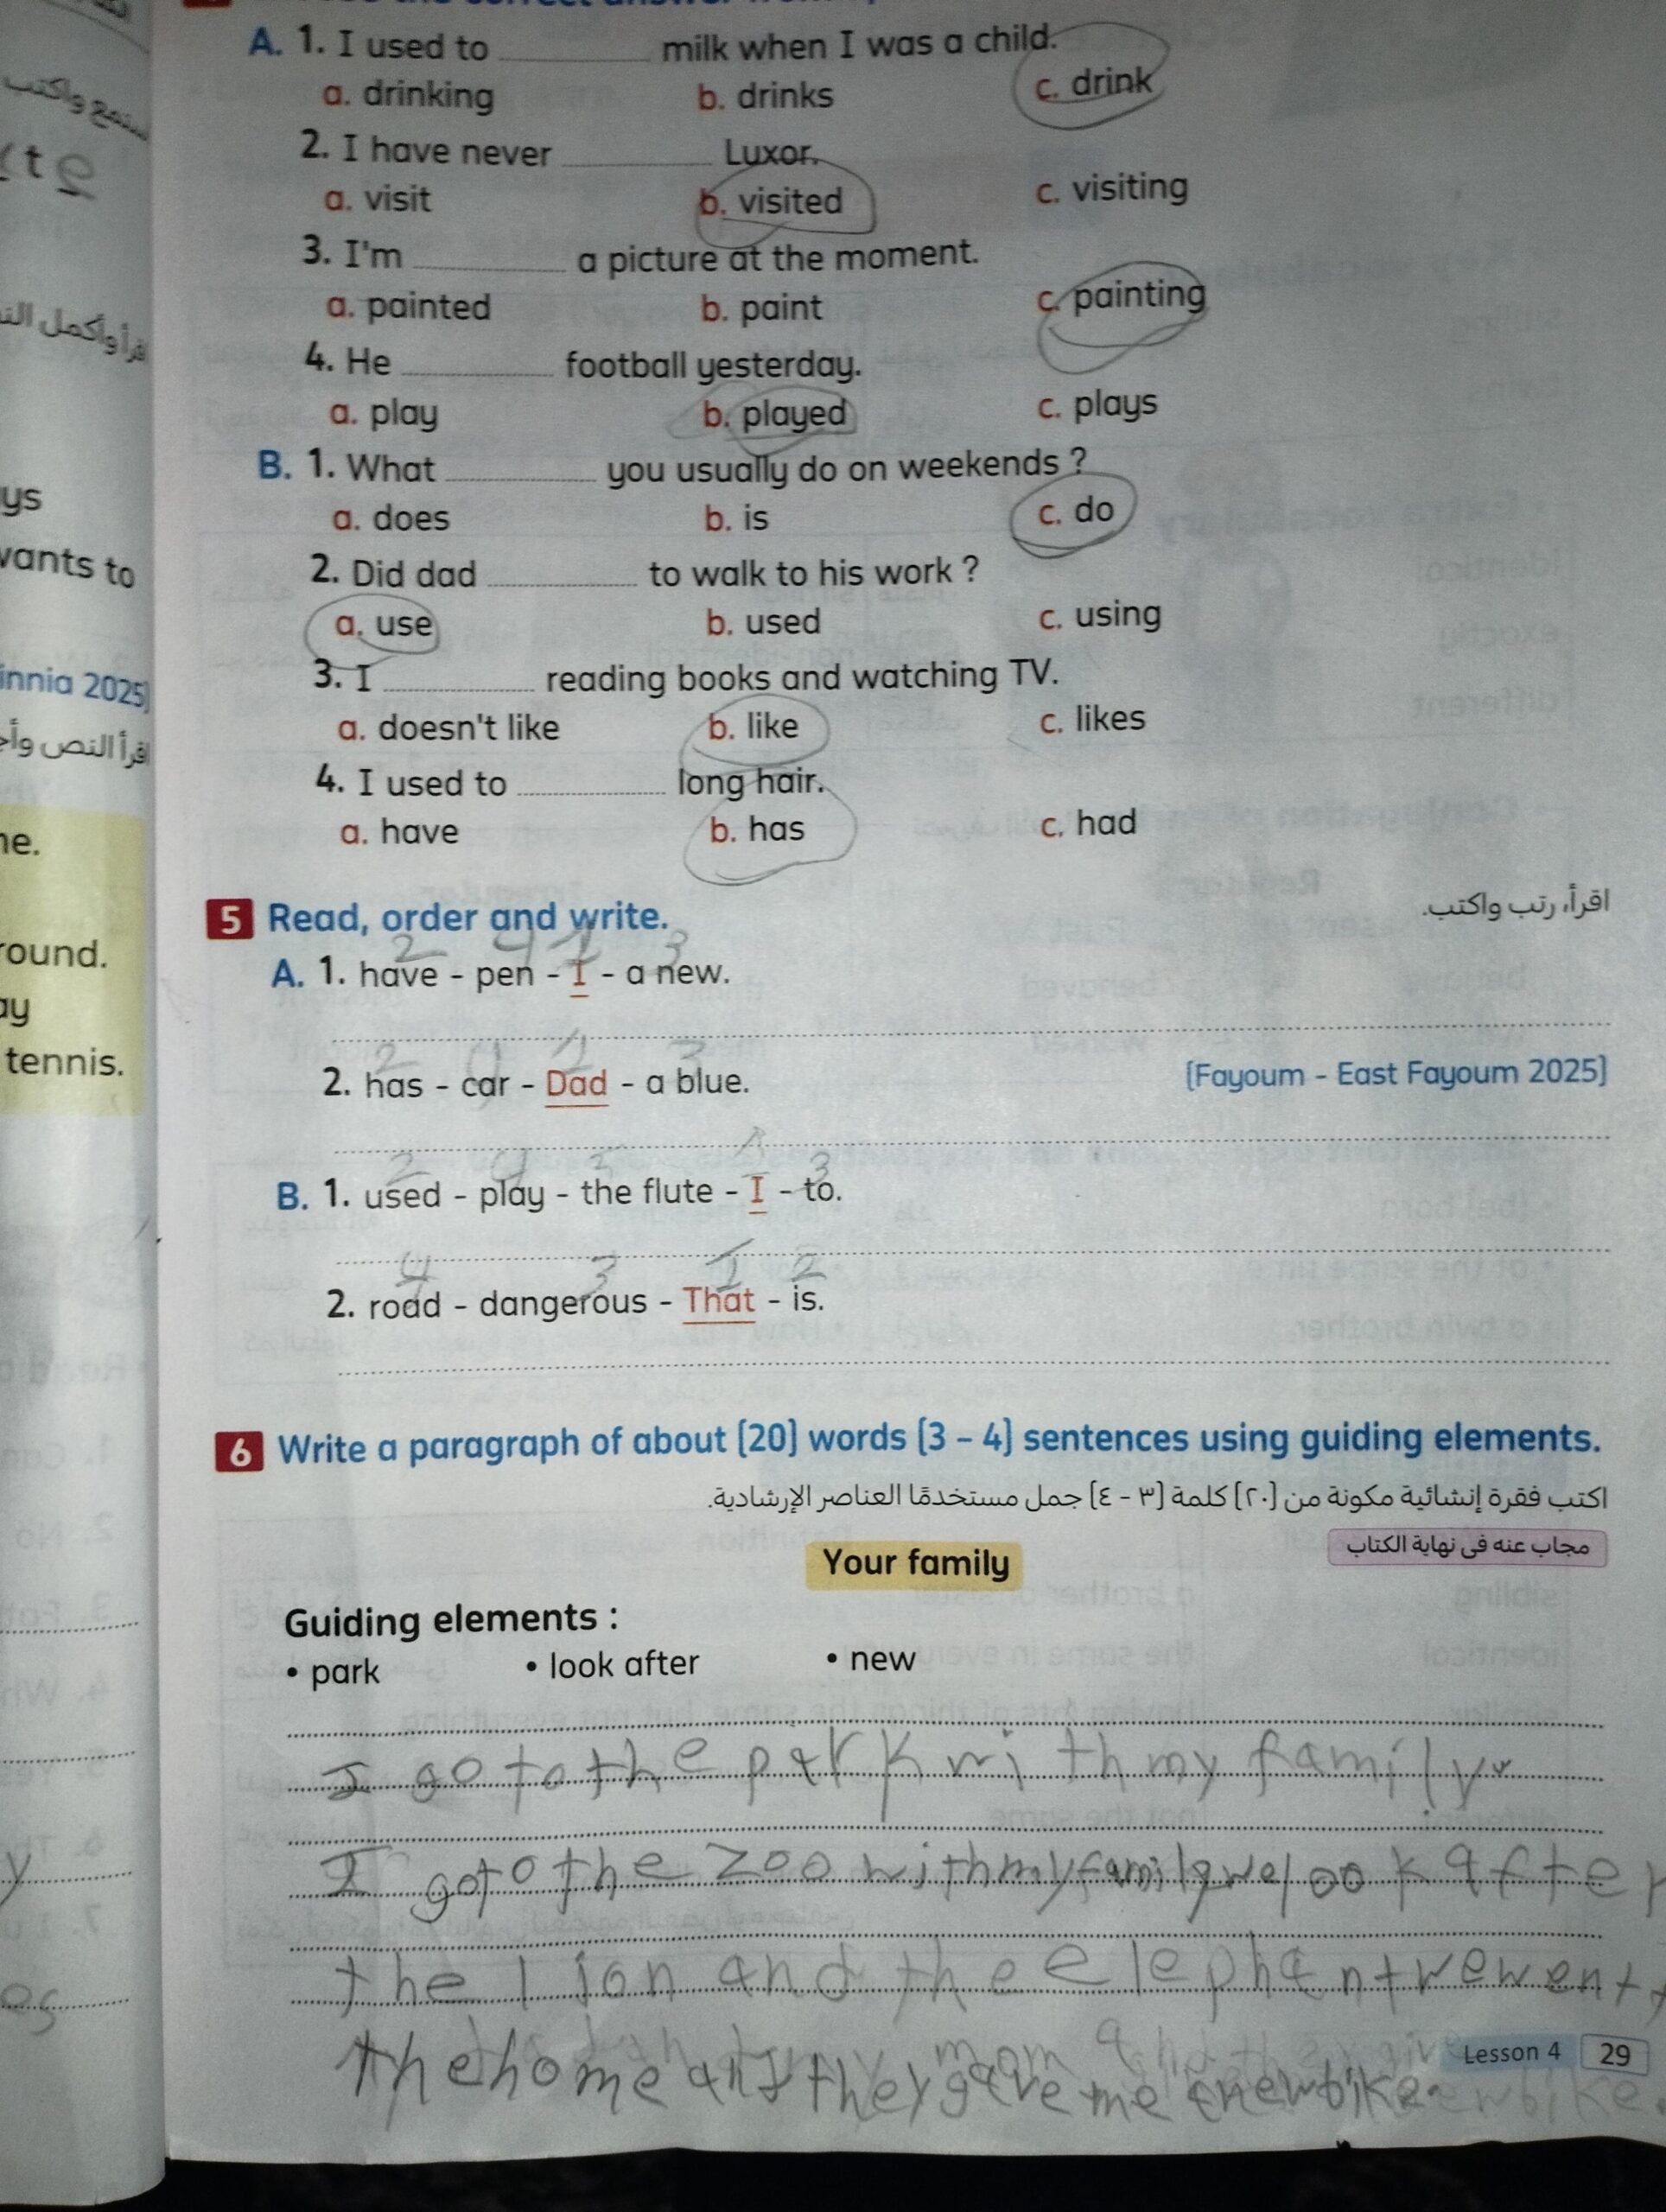 A. 1. I used to ______ milk when I was a child.
a. drinking b. drinks c. drink
2. I have never ______ Luxor.
a. visit b. visited c. visiting
3. I'm ______ a picture at the moment.
a. painted b. paint c. painting
4. He ______ football yesterday.
a. play b. played c. plays
B. 1. What ______ you usually do on weekends ?
a. does b. is c. do
2. Did dad ______ to walk to his work ?
a. use b. used c. using
3. I ______ reading books and watching TV.
a. doesn't like b. like c. likes
4. I used to ______ long hair.
a. have b. has c. had
5 Read, order and write. اقرأ، رتب واكتب.
2 4 1 3
A. 1. have - pen - I - a new.
2 4 1 3
2. has - car - Dad - a blue.
[Fayoum - East Fayoum 2025]
2 4 1 3
B. 1. used - play - the flute - I - to.
4 3 1 2
2. road - dangerous - That - is.
6 Write a paragraph of about (20) words (3 – 4) sentences using guiding elements.
اكتب فقرة إنشائية مكونة من (٢٠) كلمة (٣ - ٤) جمل مستخدمًا العناصر الإرشادية.
مجاب عنه فى نهاية الكتاب
Your family
Guiding elements :
• park • look after • new
I go to the park with my family
I go to the zoo with my family we look after
the lion and the elephant we went
the home and they gave me a new bike.
Lesson 4 29
ys
wants to
innia 2025]
اقرأ النص وأ
ne.
round.
ay
tennis.
y
es